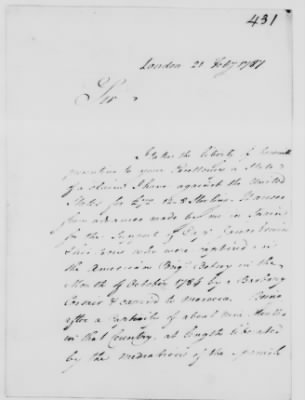 431
London 21 Feby 1787
Sir
I take the liberty to
presenting to your Excellency a State
of a claim I have against the United
States for Sterling
from advances made by me in
for the Support of Capt James Erwin
who were captured in
the American Brig Betsey in the
Month of October 1784 by a Barbary
Corsair & carried to Morocco.
after a Captivity of about nine Months
in that Country, at length liberated
by the mediation of the Spanish